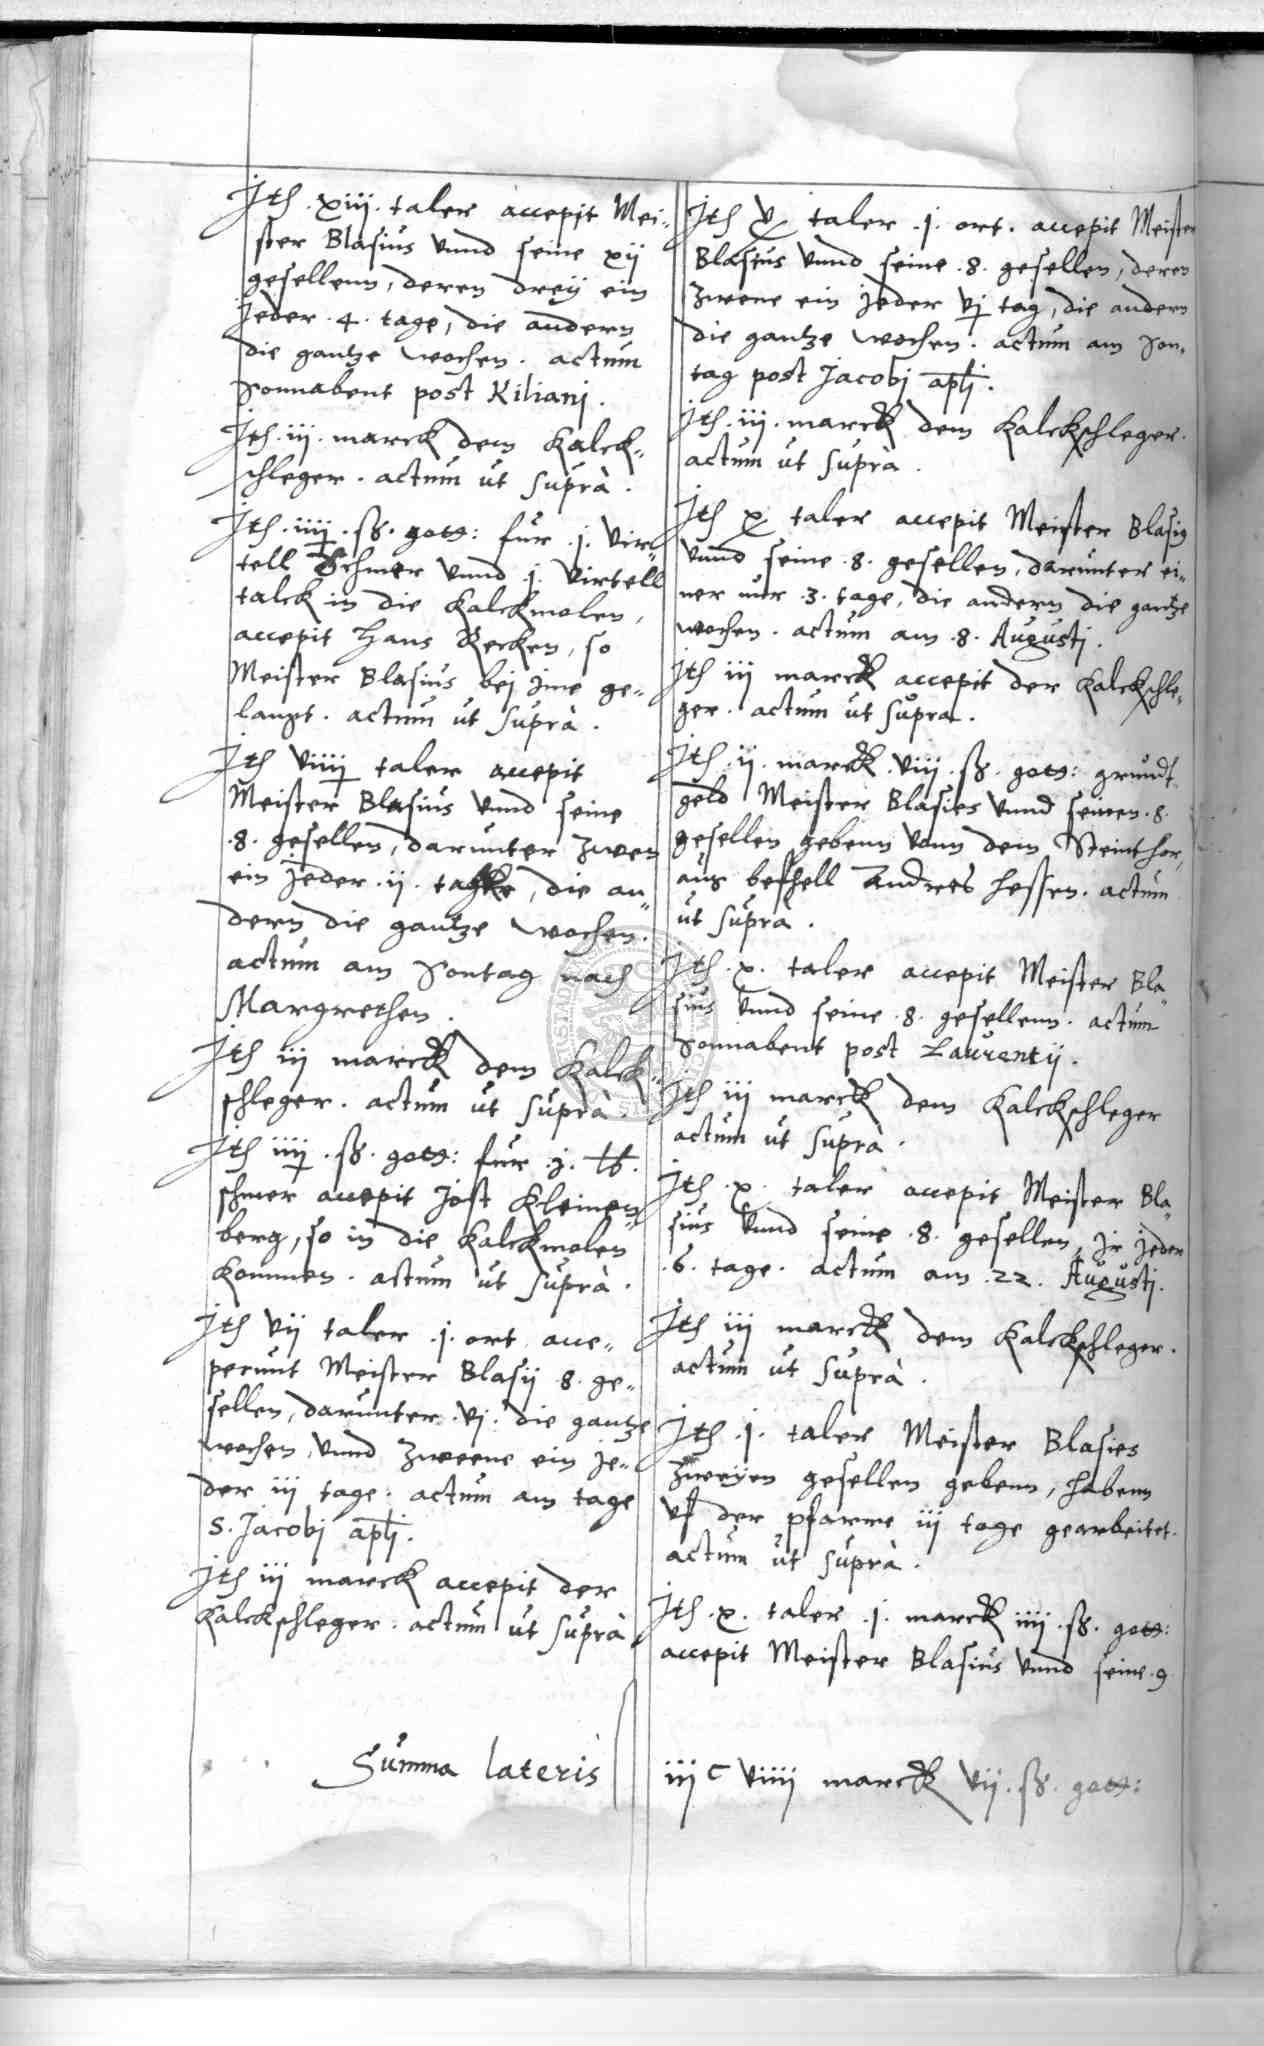 Ith .xiij. taler accepit Mei„
ster Blasius vnnd seine xij
gesellenn, deren dreÿ ein
jeder .4. tage, die andern
die gantze wochen. actum
Sonnabent post Kiliani.
Ith .iij. marck dem Kalck„
schleger. actum ut suprà.
Ith .iiij. ß. gott: fur .j. vir„
tell Schmer vnnd .j. virtell
talck in die Kalckmolen,
accepit Hans Becken, so
Meister Blasius bej jme ge„
langt. actum ut suprà.
Ith viiij taler accepit
Meister Blasius vnnd seine
.8. gesellen, darunter zwen
ein jeder .ij. tage, die an„
dern die gantze wochen.
actum am Sontag nach
Margrethen.
Ith iij marck dem Kalck„
schleger. actum ut suprà.
Ith iiij .ß. gott: fur .j. lb.
schmer accepit Jost Kleinen„
berg, so in die Kalckmolen
kommen. actum ut suprà.
Ith vij taler .j. ort acce„
perunt Meister Blasij .8. ge„
sellen, darunter .vj. die gantze
wochen, vnnd zweene ein je„
der iij tage. actum am tage
S. Jacobj apli.
Ith iij marck accepit der
Kalckschleger. actum ut suprà
Summa lateris
Ith x taler .j. ort. accepit Meister
Blasius vnnd seine .8. gesellen, deren
zweene ein jeder vj tag, die andern
die gantze wochen. actum am Son„
tag post Jacobj apli.
Ith .iij. marck dem Kalckschleger.
actum ut suprà.
Ith x taler accepit Meister Blasius
vnnd seine .8. gesellen, darunter ei„
ner nur .3. tage, die andern die gantze
wochen. actum am .8. Augustj.
Ith iij marck accepit der Kalckschle„
ger. actum ut supra.
Ith .ij. marck .viij .ß. gott: grundt
geld Meister Blasies vnnd seinen .8.
gesellen gebenn vonn dem Steinthor,
aus befhell Andres Hessen. actum
ut suprà.
Ith .x. taler accepit Meister Bla„
sius vnnd seine .8. gesellenn. actum
Sonnabent post Laurentij.
Ith iij marck dem Kalckschleger
actum ut suprà.
Ith .x. taler accepit Meister Bla„
sius vnnd seine .8. gesellen, jr jeder
.6. tage. actum am .22. Augustj.
Ith iij marck dem Kalckschleger.
actum ut suprà.
Ith .j. taler Meister Blasies
zweÿen gesellen gebenn, habenn
vf der pfarre iij tage gearbeitet.
actum ut suprà.
Ith .x. taler .j. marck iiij .ß. gott:
accepit Meister Blasius vnnd seine .9
iij C viiij marck vij .ß. gott: